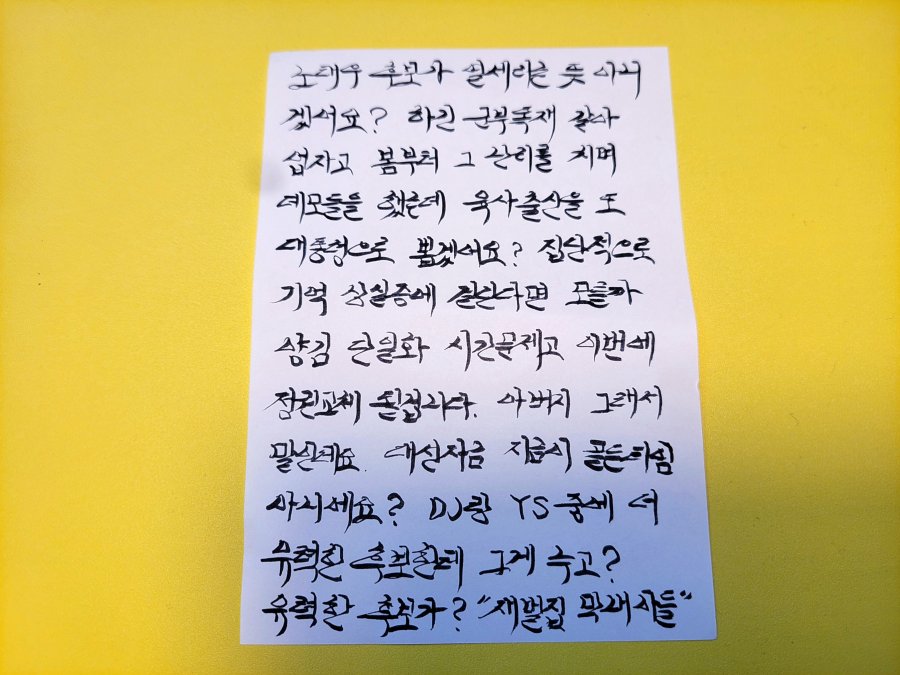 노태우 후보가 실세라는 뜻 아니
겠어요? 하긴 군부독재 갈아
엎자고 봄부터 그 난리를 치며
데모들을 했는데 육사출신을 또
대통령으로 뽑겠어요? 집단적으로
기억 상실증에 걸린다면 모를까
양김 단일화 시간문제고 이번에
정권교체 될겁니다. 아버지 그래서
말인데요. 대선자금 지금이 골든타임
아시에요? DJ랑 YS 중에 더
유력한 후보한테 그게 누고?
유력한 후보가? "재벌집 막내아들"